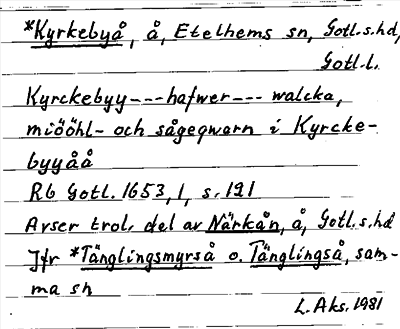 *Kyrkebyå, å, Etelhems sn, Gotl.s.hd,
Gotl.l.
Kyrckebyy---hafwer--- walcka,
miööhl- och sågeqwarn i Kyrcke-
byyåå
Rb Gotl. 1653, 1, s. 121
Avser trol. del av Närkån, å, Gotl.s.hd
Jfr *Tänglingsmyrså o. Tänglingså, sam-
ma sn
L. Aks. 1981